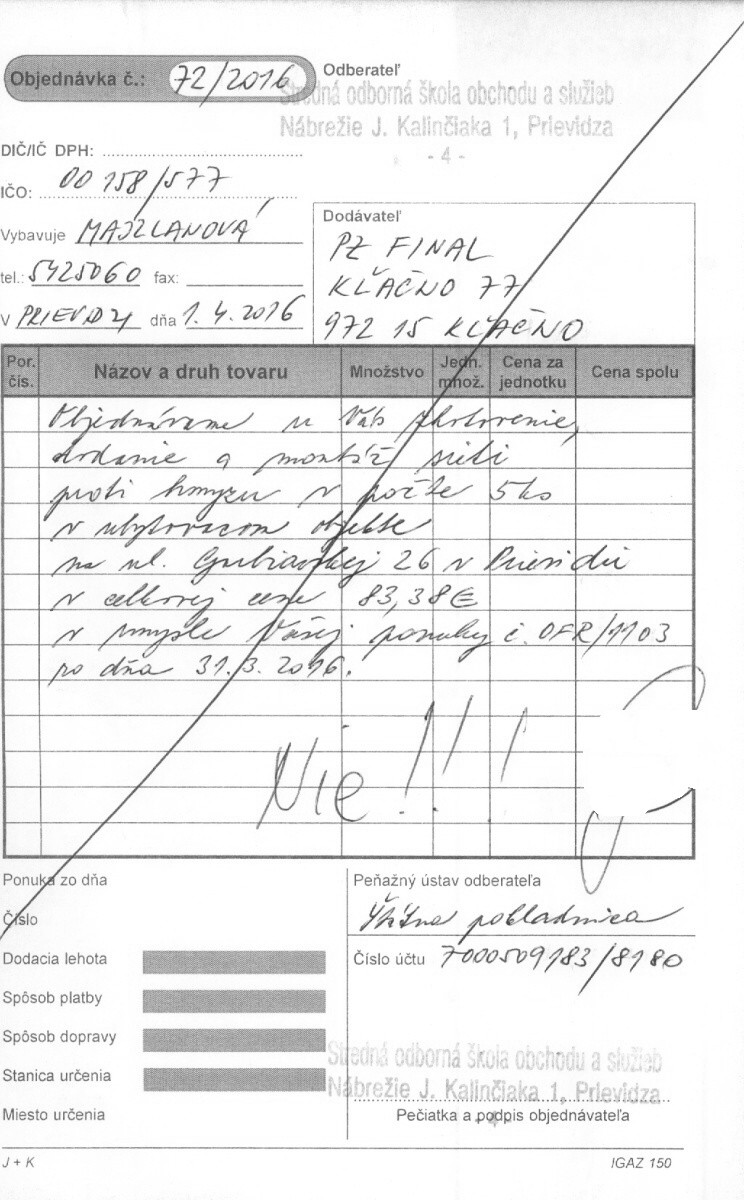 Objednávka č.: 72/2016
Odberateľ
Stredná odborná škola obchodu a služieb
Nábrežie J. Kalinčiaka 1, Prievidza
- 4 -
DIČ/IČ DPH:
IČO: 00 158/577
Vybavuje MAJZLANOVÁ
tel.: 5425060 fax:
V PRIEVIDZI dňa 1.4.2016
Dodávateľ
PZ FINAL
KĽAČNO 77
972 15 KĽAČNO
Por. čís.
Názov a druh tovaru
Množstvo
Jedn. množ.
Cena za jednotku
Cena spolu
Objednávame u Vás zhotovenie,
dodanie a montáž sietí
proti hmyzu v počte 5 ks
v ubytovacom objekte
na ul. 26 v Prievidzi
v celkovej cene 83,38€
v zmysle Vašej ponuky č. OFR/1103
zo dňa 31.3.2016.
Nie!!!
Ponuka zo dňa
Číslo
Dodacia lehota
Spôsob platby
Spôsob dopravy
Stanica určenia
Miesto určenia
Peňažný ústav odberateľa
Štátna pokladnica
Číslo účtu 7000509183/8180
Stredná odborná škola obchodu a služieb
Nábrežie J. Kalinčiaka 1, Prievidza
- 4 -
Pečiatka a podpis objednávateľa
J + K
IGAZ 150